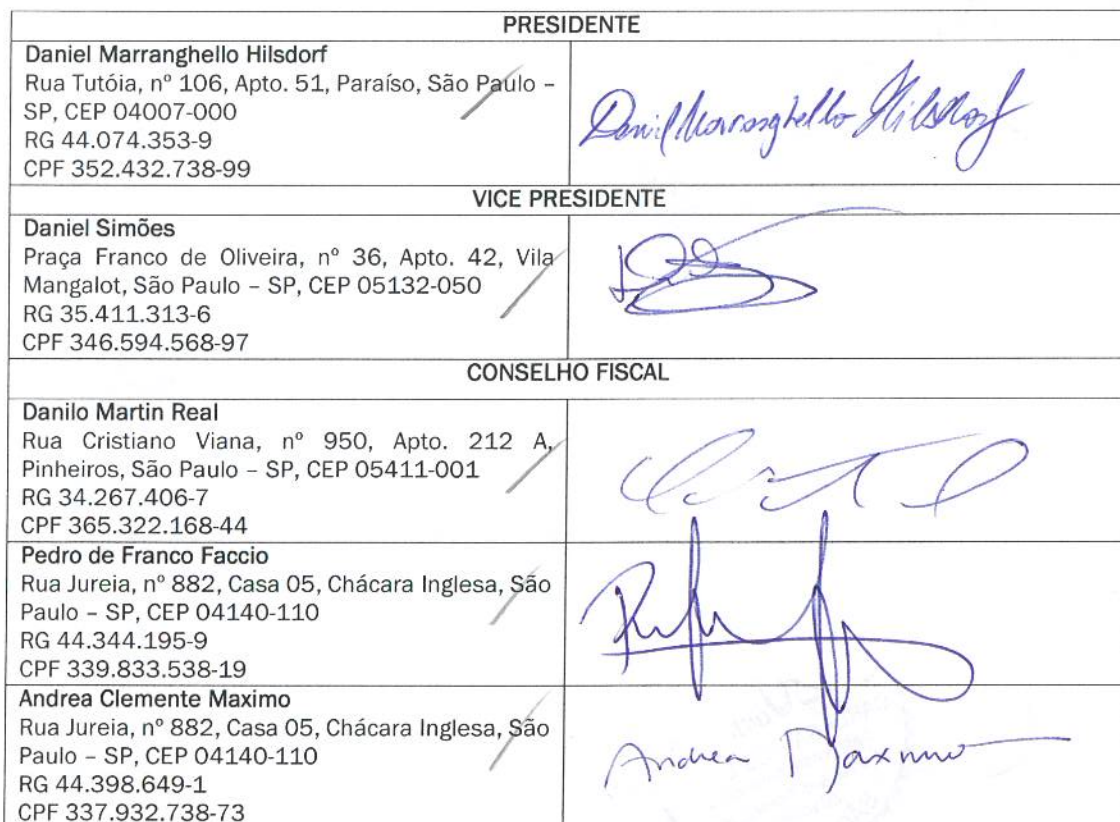 PRESIDENTE
Daniel Marranghello Hilsdorf
Rua Tutóia, nº 106, Apto. 51, Paraíso, São Paulo –
SP, CEP 04007-000
RG 44.074.353-9
CPF 352.432.738-99
Daniel Marranghello Hilsdorf
VICE PRESIDENTE
Daniel Simões
Praça Franco de Oliveira, nº 36, Apto. 42, Vila
Mangalot, São Paulo – SP, CEP 05132-050
RG 35.411.313-6
CPF 346.594.568-97
CONSELHO FISCAL
Danilo Martin Real
Rua Cristiano Viana, nº 950, Apto. 212 A,
Pinheiros, São Paulo – SP, CEP 05411-001
RG 34.267.406-7
CPF 365.322.168-44
Pedro de Franco Faccio
Rua Jureia, nº 882, Casa 05, Chácara Inglesa, São
Paulo – SP, CEP 04140-110
RG 44.344.195-9
CPF 339.833.538-19
Andrea Clemente Maximo
Rua Jureia, nº 882, Casa 05, Chácara Inglesa, São
Paulo – SP, CEP 04140-110
RG 44.398.649-1
CPF 337.932.738-73
Andrea Maximo